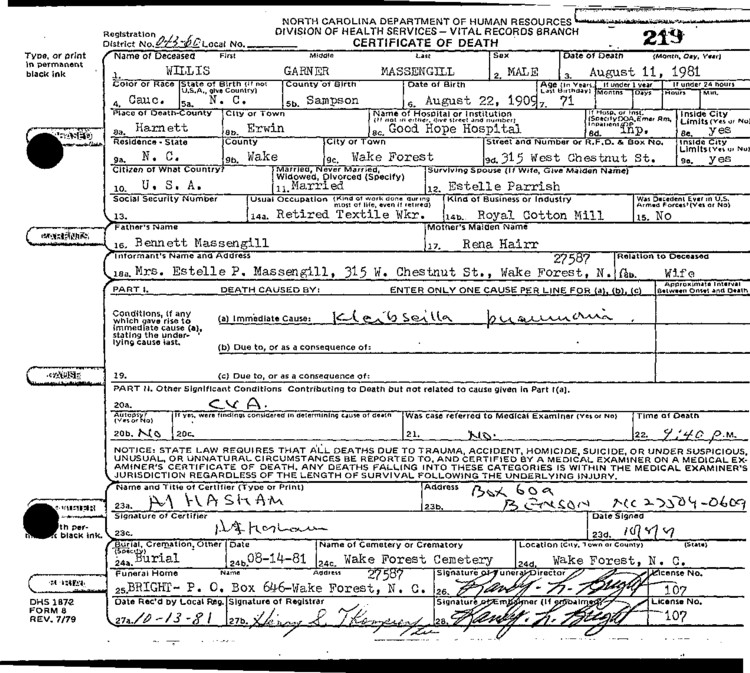 NORTH CAROLINA DEPARTMENT OF HUMAN RESOURCES
DIVISION OF HEALTH SERVICES – VITAL RECORDS BRANCH
CERTIFICATE OF DEATH
Registration District No. 043-60 Local No.
219
Type, or print in permanent black ink
Name of Deceased First Middle Last Sex Date of Death (Month, Day, Year)
1. WILLIS GARNER MASSENGILL 2. MALE 3. August 11, 1981
Color or Race State of Birth (If not U.S.A., give Country) County of Birth Date of Birth Age (In Years Last Birthday) If under 1 year Months Days If under 24 hours Hours Min.
4. Cauc. 5a. N. C. 5b. Sampson 6. August 22, 1909 7. 71
Place of Death-County City or Town Name of Hospital or Institution (If not in either, give street and number) If Hosp. or Inst. (Specify DOA, Emer Rm, Inpatient) Inside City Limits (Yes or No)
8a. Harnett 8b. Erwin 8c. Good Hope Hospital 8d. Inp. 8e. yes
Residence - State County City or Town Street and Number or R.F.D. & Box No. Inside City Limits (Yes or No)
9a. N. C. 9b. Wake 9c. Wake Forest 9d. 315 West Chestnut St. 9e. yes
Citizen of What Country? Married, Never Married, Widowed, Divorced (Specify) Surviving Spouse (If Wife, Give Maiden Name)
10. U. S. A. 11. Married 12. Estelle Parrish
Social Security Number Usual Occupation (Kind of work done during most of life, even if retired) Kind of Business or Industry Was Decedent Ever in U.S. Armed Forces? (Yes or No)
13. 14a. Retired Textile Wkr. 14b. Royal Cotton Mill 15. No
Father's Name Mother's Maiden Name
16. Bennett Massengill 17. Rena Hairr
Informant's Name and Address 27587 Relation to Deceased
18a. Mrs. Estelle P. Massengill, 315 W. Chestnut St., Wake Forest, N. 18b. Wife
PART I. DEATH CAUSED BY: ENTER ONLY ONE CAUSE PER LINE FOR (a), (b), (c) Approximate Interval Between Onset and Death
Conditions, if any which gave rise to immediate cause (a), stating the underlying cause last.
(a) Immediate Cause: Kleibseilla pneumonia
(b) Due to, or as a consequence of:
19. (c) Due to, or as a consequence of:
CAUSE
PART II. Other Significant Conditions Contributing to Death but not related to cause given in Part I(a).
20a. CVA.
Autopsy? (Yes or No) If yes, were findings considered in determining cause of death Was case referred to Medical Examiner (Yes or No) Time of Death
20b. No 20c. 21. No. 22. 9:40 P.M.
NOTICE: STATE LAW REQUIRES THAT ALL DEATHS DUE TO TRAUMA, ACCIDENT, HOMICIDE, SUICIDE, OR UNDER SUSPICIOUS,
UNUSUAL, OR UNNATURAL CIRCUMSTANCES BE REPORTED TO, AND CERTIFIED BY A MEDICAL EXAMINER ON A MEDICAL EX-
AMINER'S CERTIFICATE OF DEATH. ANY DEATHS FALLING INTO THESE CATEGORIES IS WITHIN THE MEDICAL EXAMINER'S
JURISDICTION REGARDLESS OF THE LENGTH OF SURVIVAL FOLLOWING THE UNDERLYING INJURY.
Name and Title of Certifier (Type or Print) Address Box 609
23a. HASHAM 23b. BENSON NC 0609
Signature of Certifier Date Signed
23c. 23d.
black ink.
Burial, Cremation, Other (Specify) Date Name of Cemetery or Crematory Location (City, Town or County) (State)
24a. Burial 24b. 08-14-81 24c. Wake Forest Cemetery 24d. Wake Forest, N. C.
Funeral Home Name Address 27587 Signature of Funeral Director License No.
25. BRIGHT- P. O. Box 646-Wake Forest, N. C. 26. Randy L. Bright 107
Date Rec'd by Local Reg. Signature of Registrar Signature of Embalmer (If embalmed) License No.
27a. 10-13-81 27b. Henry S. Thompson 28. Randy L. Bright 107
DHS 1872
FORM 8
REV. 7/79